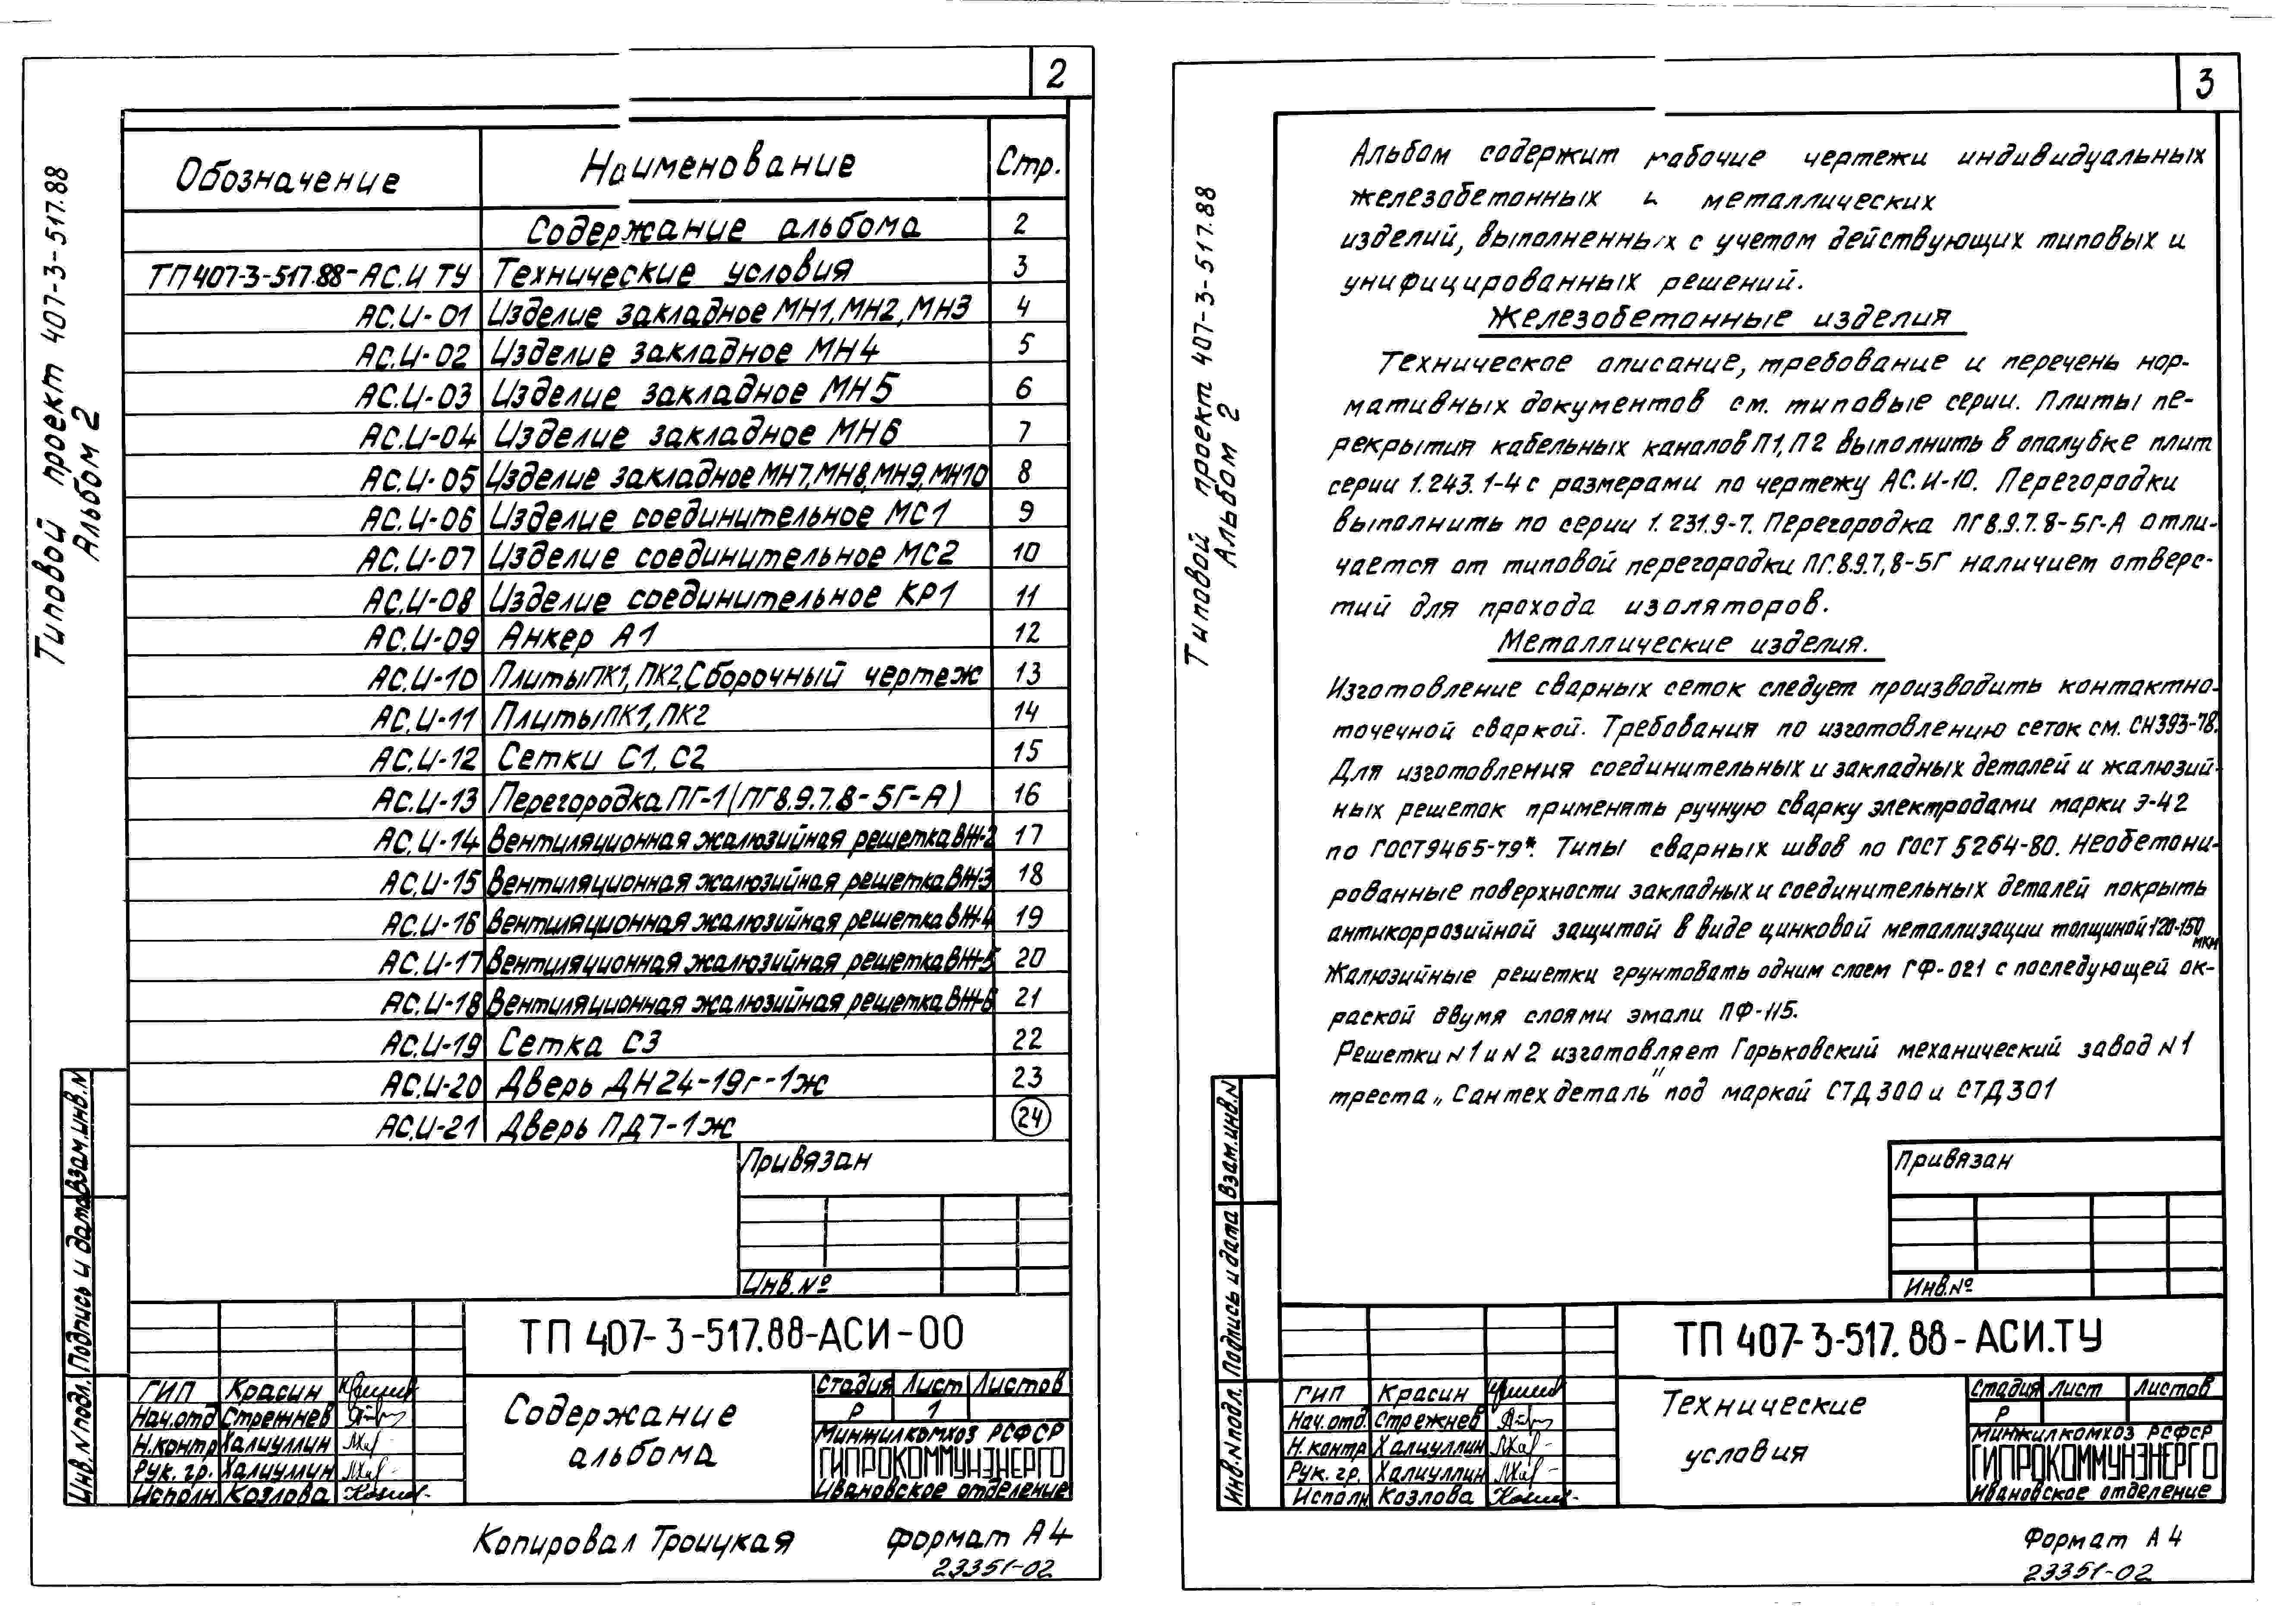 2
Типовой проект 407-3-517.88
Альбом 2
Обозначение Наименование Стр.
Содержание альбома 2
ТП407-3-517.88-АС.И ТУ Технические условия 3
АС.И-01 Изделие закладное МН1, МН2, МН3 4
АС.И-02 Изделие закладное МН4 5
АС.И-03 Изделие закладное МН5 6
АС.И-04 Изделие закладное МН6 7
АС.И-05 Изделие закладное МН7, МН8, МН9, МН10 8
АС.И-06 Изделие соединительное МС1 9
АС.И-07 Изделие соединительное МС2 10
АС.И-08 Изделие соединительное КР1 11
АС.И-09 Анкер А1 12
АС.И-10 Плиты ПК1, ПК2, Сборочный чертеж 13
АС.И-11 Плиты ПК1, ПК2 14
АС.И-12 Сетки С1, С2 15
АС.И-13 Перегородка ПГ-1 (ПГ8.9.7.8-5Г-А) 16
АС.И-14 Вентиляционная жалюзийная решетка ВЖ-2 17
АС.И-15 Вентиляционная жалюзийная решетка ВЖ-3 18
АС.И-16 Вентиляционная жалюзийная решетка ВЖ-4 19
АС.И-17 Вентиляционная жалюзийная решетка ВЖ-5 20
АС.И-18 Вентиляционная жалюзийная решетка ВЖ-6 21
АС.И-19 Сетка С3 22
АС.И-20 Дверь ДН24-19г-1ж 23
АС.И-21 Дверь ПД7-1ж 24
Привязан
Инв.№
Взам.инв.N
Подпись и дата
Инв.N подл.
ТП 407-3-517.88-АСИ-00
ГИП Красин
Нач.отд Стрежнев
Н.контр Халиуллин
Рук. гр. Халиуллин
Исполн Козлова
Содержание
альбома
Стадия Лист Листов
Р 1
Минжилкомхоз РСФСР
ГИПРОКОММУНЭНЕРГО
Ивановское отделение
Копировал Троицкая Формат А4
23351-02
3
Типовой проект 407-3-517.88
Альбом 2
Альбом содержит рабочие чертежи индивидуальных
железобетонных и металлических
изделий, выполненных с учетом действующих типовых и
унифицированных решений.
Железобетонные изделия
Техническое описание, требование и перечень нор-
мативных документов см. типовые серии. Плиты пе-
рекрытия кабельных каналов П1, П2 выполнить в опалубке плит
серии 1.243.1-4 с размерами по чертежу АС.И-10. Перегородки
выполнить по серии 1.231.9-7. Перегородка ПГ8.9.7.8-5Г-А отли-
чается от типовой перегородки ПГ.8.9.7,8-5Г наличием отверс-
тий для прохода изоляторов.
Металлические изделия.
Изготовление сварных сеток следует производить контактно-
точечной сваркой. Требования по изготовлению сеток см. СН393-78.
Для изготовления соединительных и закладных деталей и жалюзий-
ных решеток применять ручную сварку электродами марки Э-42
по ГОСТ9465-79*. Типы сварных швов по ГОСТ 5264-80. Необетони-
рованные поверхности закладных и соединительных деталей покрыть
антикоррозийной защитой в виде цинковой металлизации толщиной 120-150 мкм
Жалюзийные решетки грунтовать одним слоем ГФ-021 с последующей ок-
раской двумя слоями эмали ПФ-115.
Решетки N1 и N2 изготовляет Горьковский механический завод N1
треста „Сантехдеталь" под маркой СТД300 и СТД301
Привязан
Инв.№
Взам.инв.N
Подпись и дата
Инв.N подл.
ТП 407-3-517.88-АСИ.ТУ
ГИП Красин
Нач.отд. Стрежнев
Н.контр Халиуллин
Рук. гр. Халиуллин
Исполн Козлова
Технические
условия
Стадия Лист Листов
Р
Минжилкомхоз РСФСР
ГИПРОКОММУНЭНЕРГО
Ивановское отделение
Формат А4
23351-02